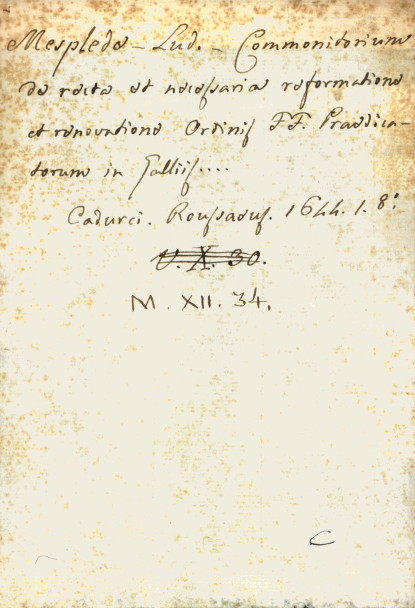 Mesplede - Lud. - Commonitorium
de recta et necessaria reformatione
et renovatione Ordinis FF. Praedica-
torum in Galliis....
Cadurci. Roussaeus. 1644. 1. 8:
V. X. 30.
M. XII. 34.
C